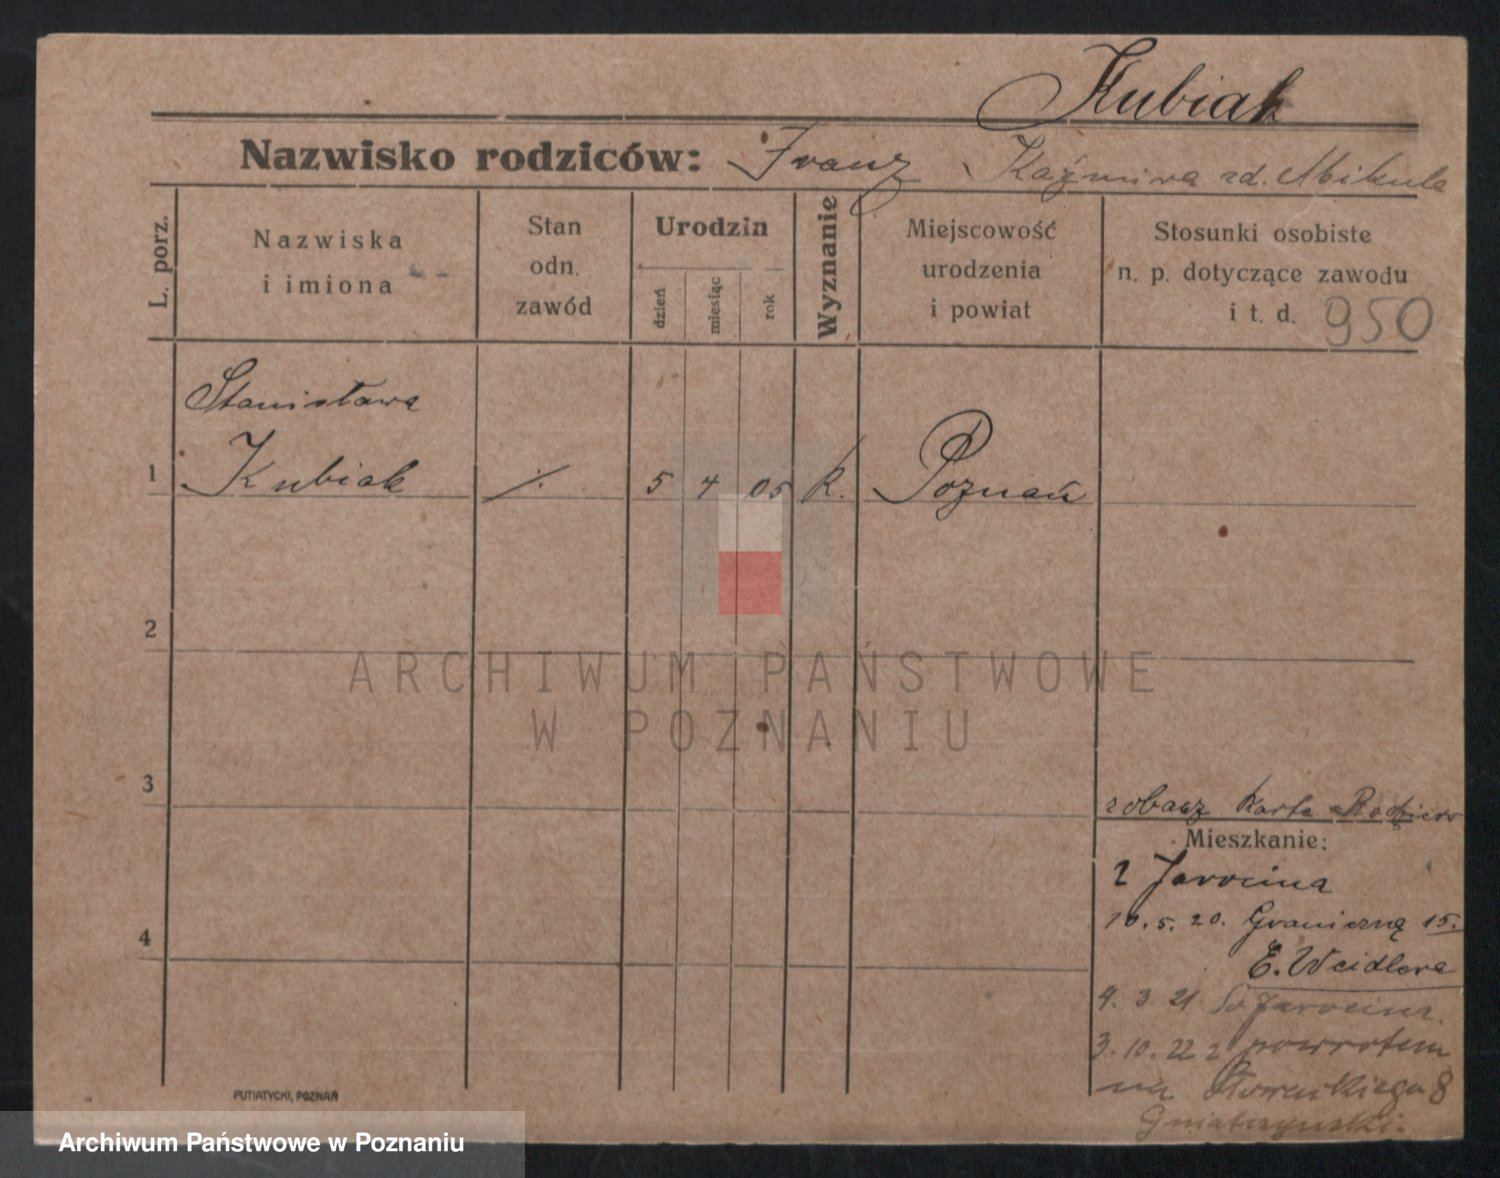 Kubiak
Nazwisko rodziców: Franz Kaźmira zd. Mikuła
L. porz.
Nazwiska
i imiona
Stan
odn.
zawód
Urodzin
dzień
miesiąc
rok
Wyznanie
Miejscowość
urodzenia
i powiat
Stosunki osobiste
n. p. dotyczące zawodu
i t. d. 950
Stanisława
1 Kubiak ·/. 5 4 05 k. Poznań
2
ARCHIWUM PAŃSTWOWE
W POZNANIU
3
zobacz Karta Rodziców
Mieszkanie:
z Jarocina
10. 5. 20. Graniczną 15.
4
E. Weidlera
4. 3. 21 do Jarocina.
3. 10. 22 z powrotem
na 8
PUTIATYCKI, POZNAŃ
Archiwum Państwowe w Poznaniu